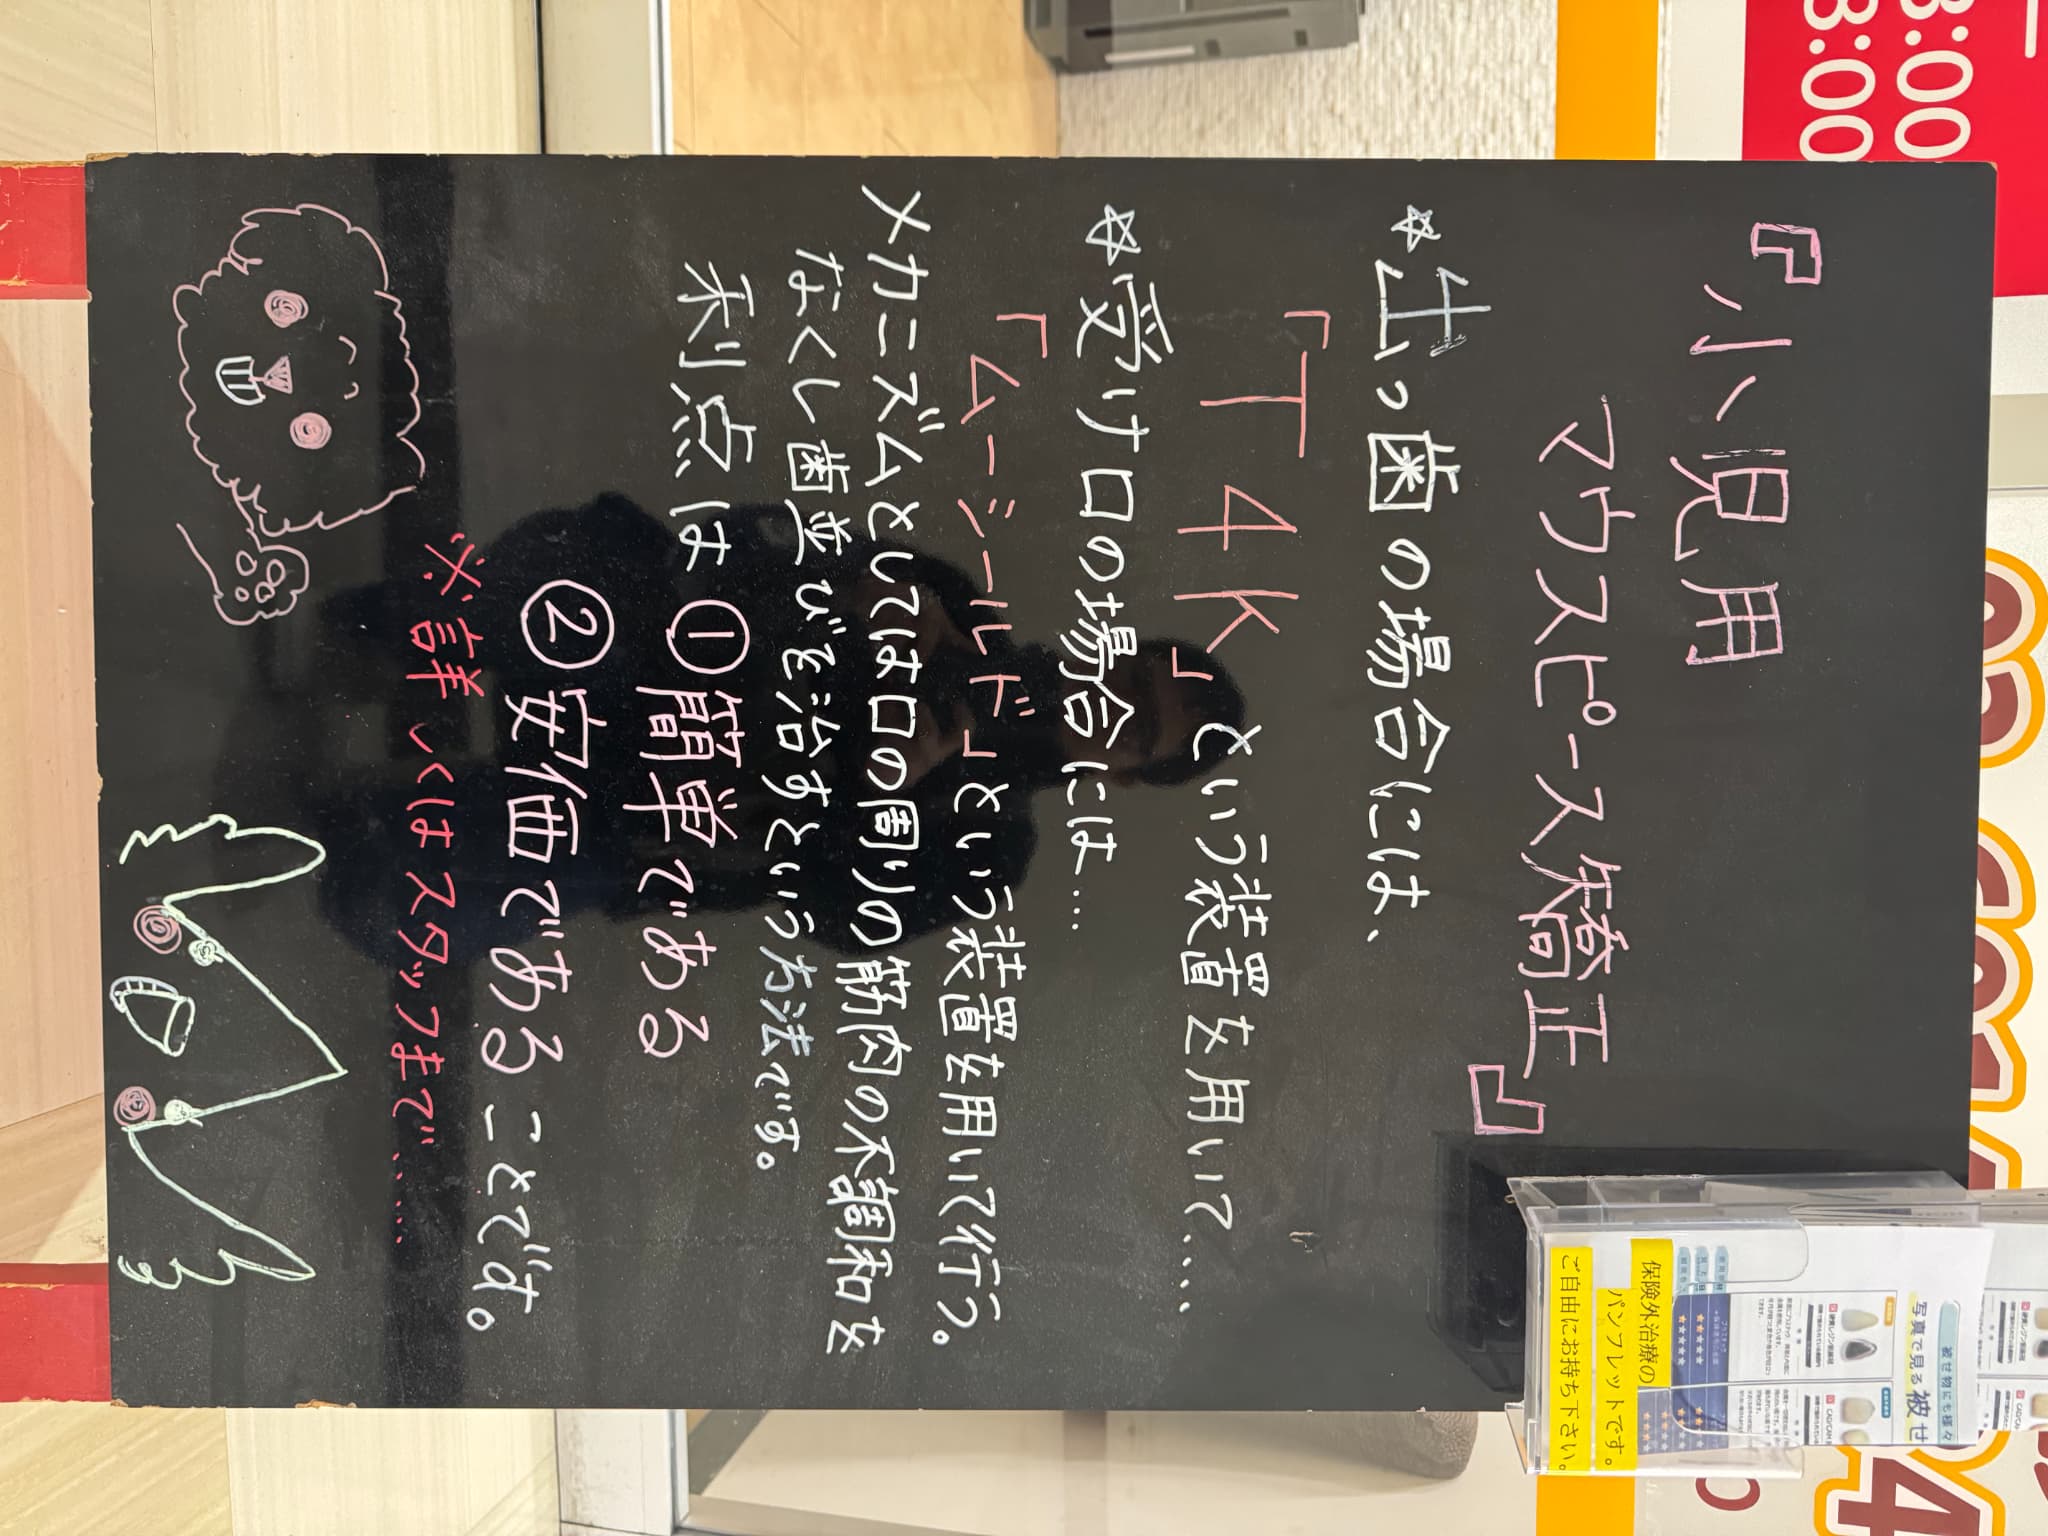 『小児用
マウスピース矯正』
☆出っ歯の場合には、
「T4K」という装置を用いて....
☆受け口の場合には...
「ムーシールド」という装置を用いて行う。
メカニズムとしては口の周りの筋肉の不調和を
なくし歯並びを治すという方法です。
利点は①簡単である
②安価であることです。
※詳しくはスタッフまで.....
被せ物にも様々
写真で見る被せ
保険外治療の
パンフレットです。
ご自由にお持ち下さい。
8:00
8:00